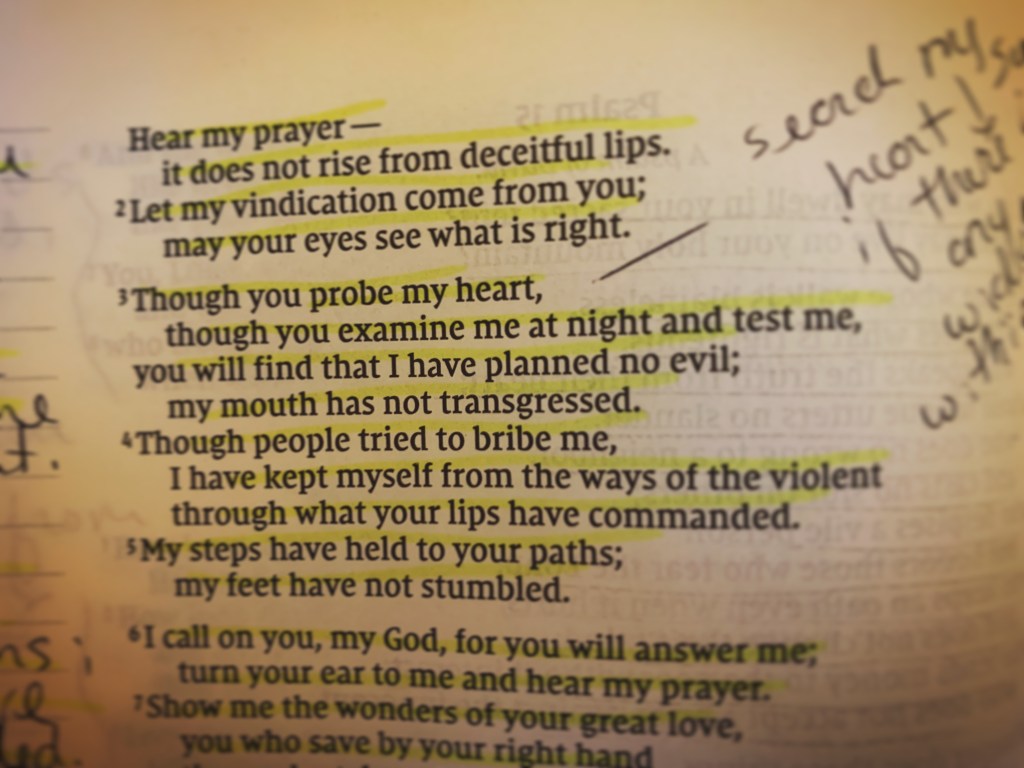 Hear my prayer—
it does not rise from deceitful lips.
2 Let my vindication come from you;
may your eyes see what is right.
3 Though you probe my heart,
though you examine me at night and test me,
you will find that I have planned no evil;
my mouth has not transgressed.
4 Though people tried to bribe me,
I have kept myself from the ways of the violent
through what your lips have commanded.
5 My steps have held to your paths;
my feet have not stumbled.
6 I call on you, my God, for you will answer me;
turn your ear to me and hear my prayer.
7 Show me the wonders of your great love,
you who save by your right hand
search my
heart!
if there
any